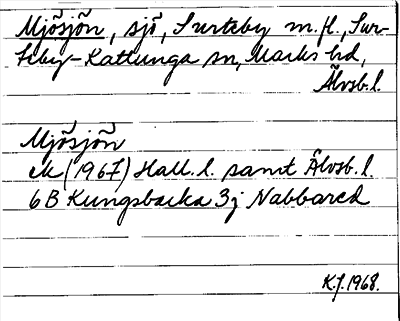 Mjösjön, sjö, Surteby m.fl., Sur-
teby-Kattunga sn, Marks hd,
Älvsb.l.
Mjösjön
M (1967) Hall. l. samt Älvsb. l.
6 B Kungsbacka 3j Nabbared
K.J. 1968.